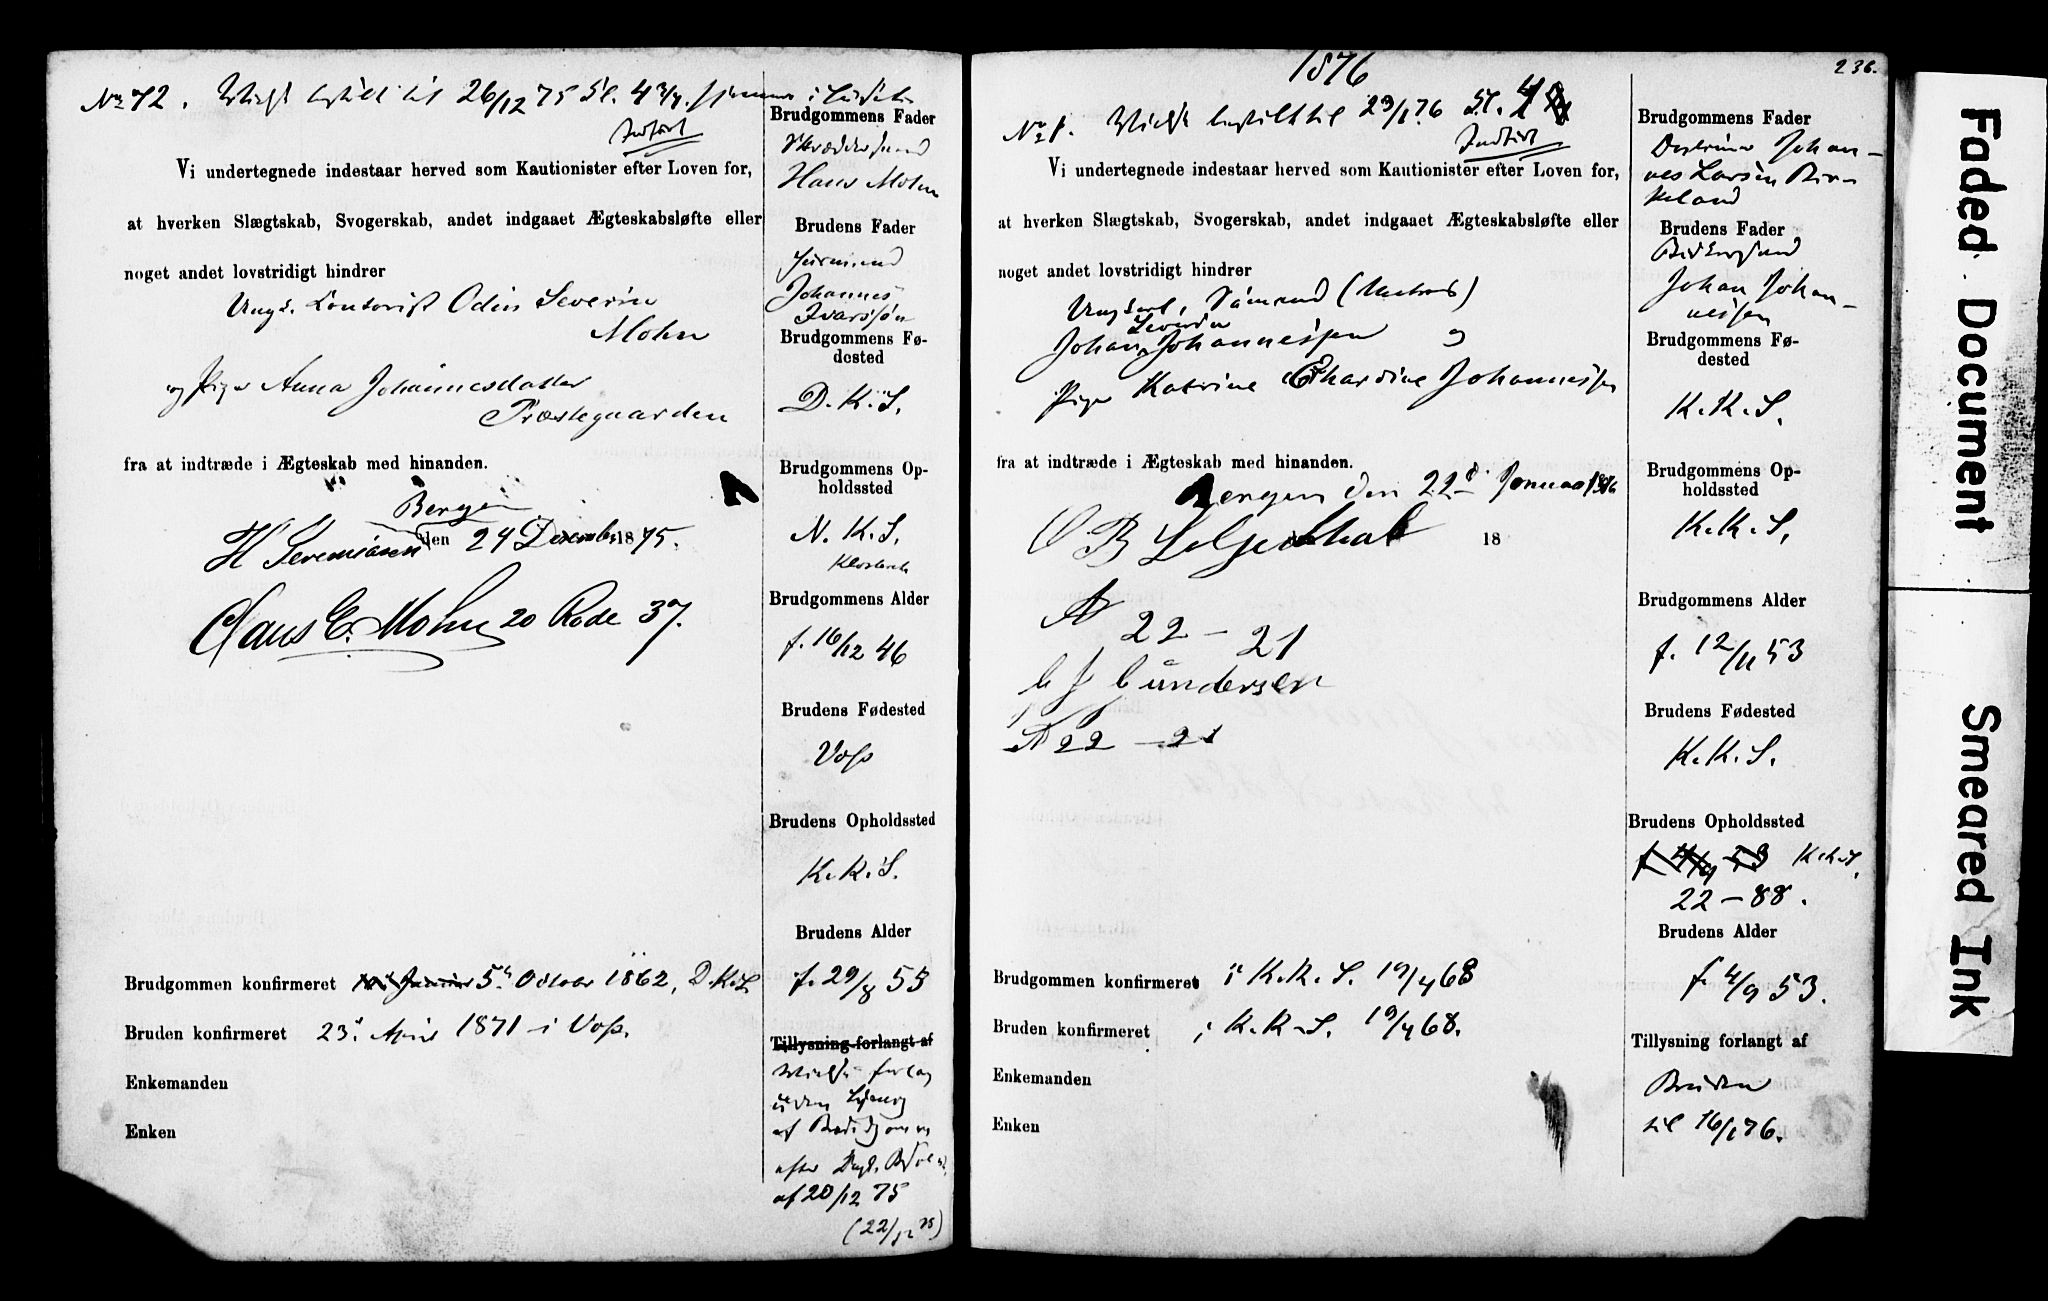 No 72. Vielse bestilt til 26/12 75 Kl. 4 3/4
Indført
Vi undertegnede indestaar herved som Kautionister efter Loven for,
at hverken Slægtskab, Svogerskab, andet indgaaet Ægteskabsløfte eller
noget andet lovstridigt hindrer
Ungk. Contorist Odin Severin
Mohn
og Pige Anna Johannesdatter
Præstegaarden
fra at indtræde i Ægteskab med hinanden.
Bergen
den 24 December 1875.
H Jeremiasen
Claus C. Mohn 20 Rode 37.
Brudgommen konfirmeret 5. October 1862, D.K.S.
Bruden konfirmeret 23. April 1871 i Voss.
Enkemanden
Enken
Brudgommens Fader
Skrædersvend
Hans Mohn
Brudens Fader
Huusmand
Johannes
Ivarssøn
Brudgommens Fø-
dested
D. K. S.
Brudgommens Op-
holdssted
N. K. S.
Brudgommens Alder
f. 16/12 46
Brudens Fødested
Voss
Brudens Opholdssted
K. K. S.
Brudens Alder
f. 29/8 55
Tillysning forlangt af
Vielse forlag
uden Lysning
af Brudgommen
efter
af 20/12 75
(22/12 75)
1876
236.
No 1. Vielse bestilt til 23/1 76 Kl. 4
Indført
Vi undertegnede indestaar herved som Kautionister efter Loven for,
at hverken Slægtskab, Svogerskab, andet indgaaet Ægteskabsløfte eller
noget andet lovstridigt hindrer
Ungkarl, Sømand (Matros)
Severin
Johan Johannessen og
Pige Katrine Johannessen
fra at indtræde i Ægteskab med hinanden.
Bergen den 22 Januar 1876
18
O B Liljedskab
A 22 - 21
Gundersen
A 22 - 21
Brudgommen konfirmeret i K. K. S. 19/4 68
Bruden konfirmeret i K. K. S. 19/4 68.
Enkemanden
Enken
Brudgommens Fader
Johan-
nes Larsen Birke-
land
Brudens Fader
Johan Johan-
nessen
Brudgommens Fø-
dested
K. K. S.
Brudgommens Op-
holdssted
K. K. S.
Brudgommens Alder
f. 12/11 53
Brudens Fødested
K. K. S.
Brudens Opholdssted
f. 4/9 53 K.K.S.
22 - 88.
Brudens Alder
f. 4/9 53.
Tillysning forlangt af
Bruden
til 16/1 76.
Faded Document
Smeared Ink